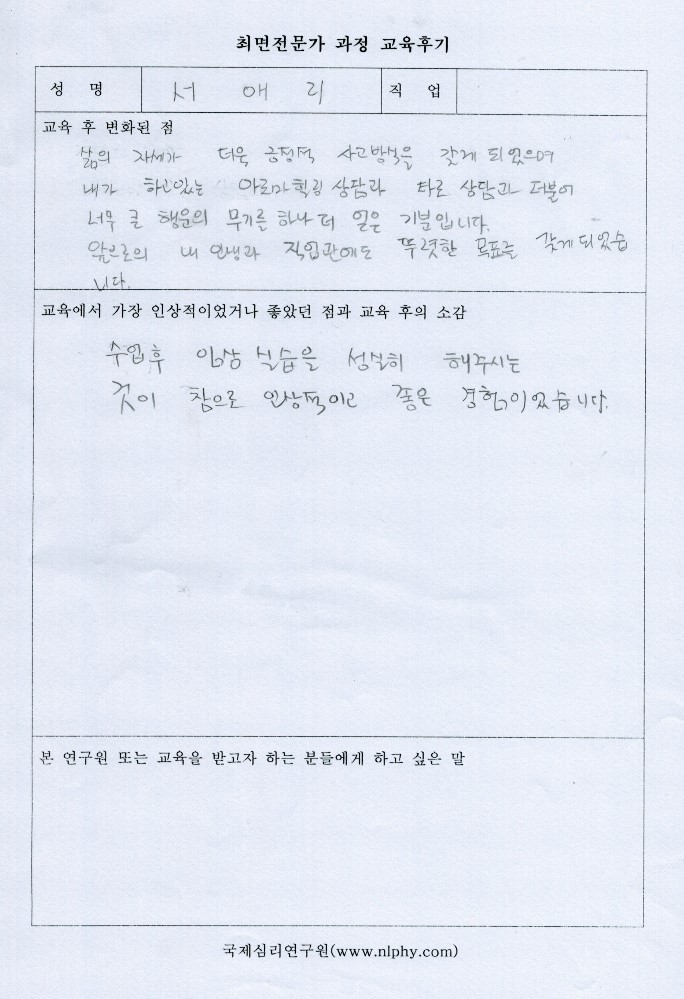 최면전문가 과정 교육후기
성 명 서 애 리 직 업
교육 후 변화된 점
삶의 자세가 더욱 긍정적 사고방식을 갖게 되었으며
내가 하고있는 아로마힐링 상담과 타로 상담과 더불어
너무 큰 행운의 무기를 하나 더 얻은 기분입니다.
앞으로의 내 인생과 직업관에도 뚜렷한 목표를 갖게 되었습
니다.
교육에서 가장 인상적이었거나 좋았던 점과 교육 후의 소감
수업후 임상 실습을 성실히 해주시는
것이 참으로 인상적이고 좋은 경험이었습니다.
본 연구원 또는 교육을 받고자 하는 분들에게 하고 싶은 말
국제심리연구원(www.nlphy.com)